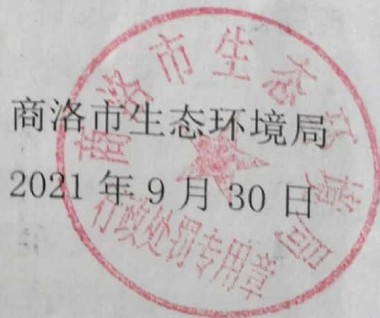 商洛市生态环境局
2021年9月30日
商洛市生态环境局
行政处罚专用章